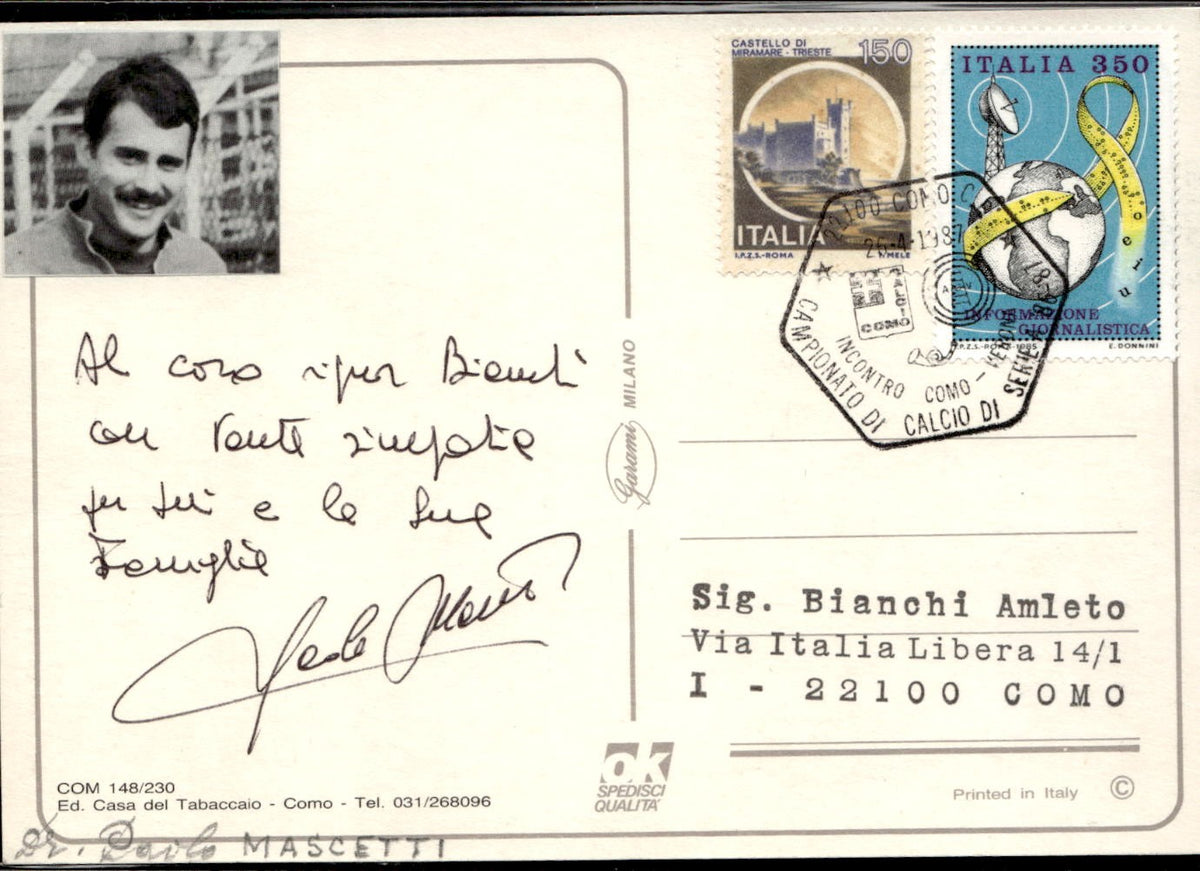 CASTELLO DI
MIRAMARE - TRIESTE
150
ITALIA
I.P.Z.S.-ROMA
MELE
ITALIA 350
oeiu
INFORMAZIONE
GIORNALISTICA
I.P.Z.S.-ROMA-1985
E. DONNINI
22100 COMO C
26-4-1987
CALCIO
COMO
INCONTRO COMO - VERONA
CAMPIONATO DI CALCIO DI SERIE A 86-87
Al caro signor Bianchi
con tanta simpatia
per lei e la sua
Famiglia
Garami MILANO
Sig. Bianchi Amleto
Via Italia Libera 14/1
I - 22100 COMO
ok
SPEDISCI
QUALITA'
COM 148/230
Ed. Casa del Tabaccaio - Como - Tel. 031/268096
Printed in Italy ©
Dr. Paolo MASCETTI